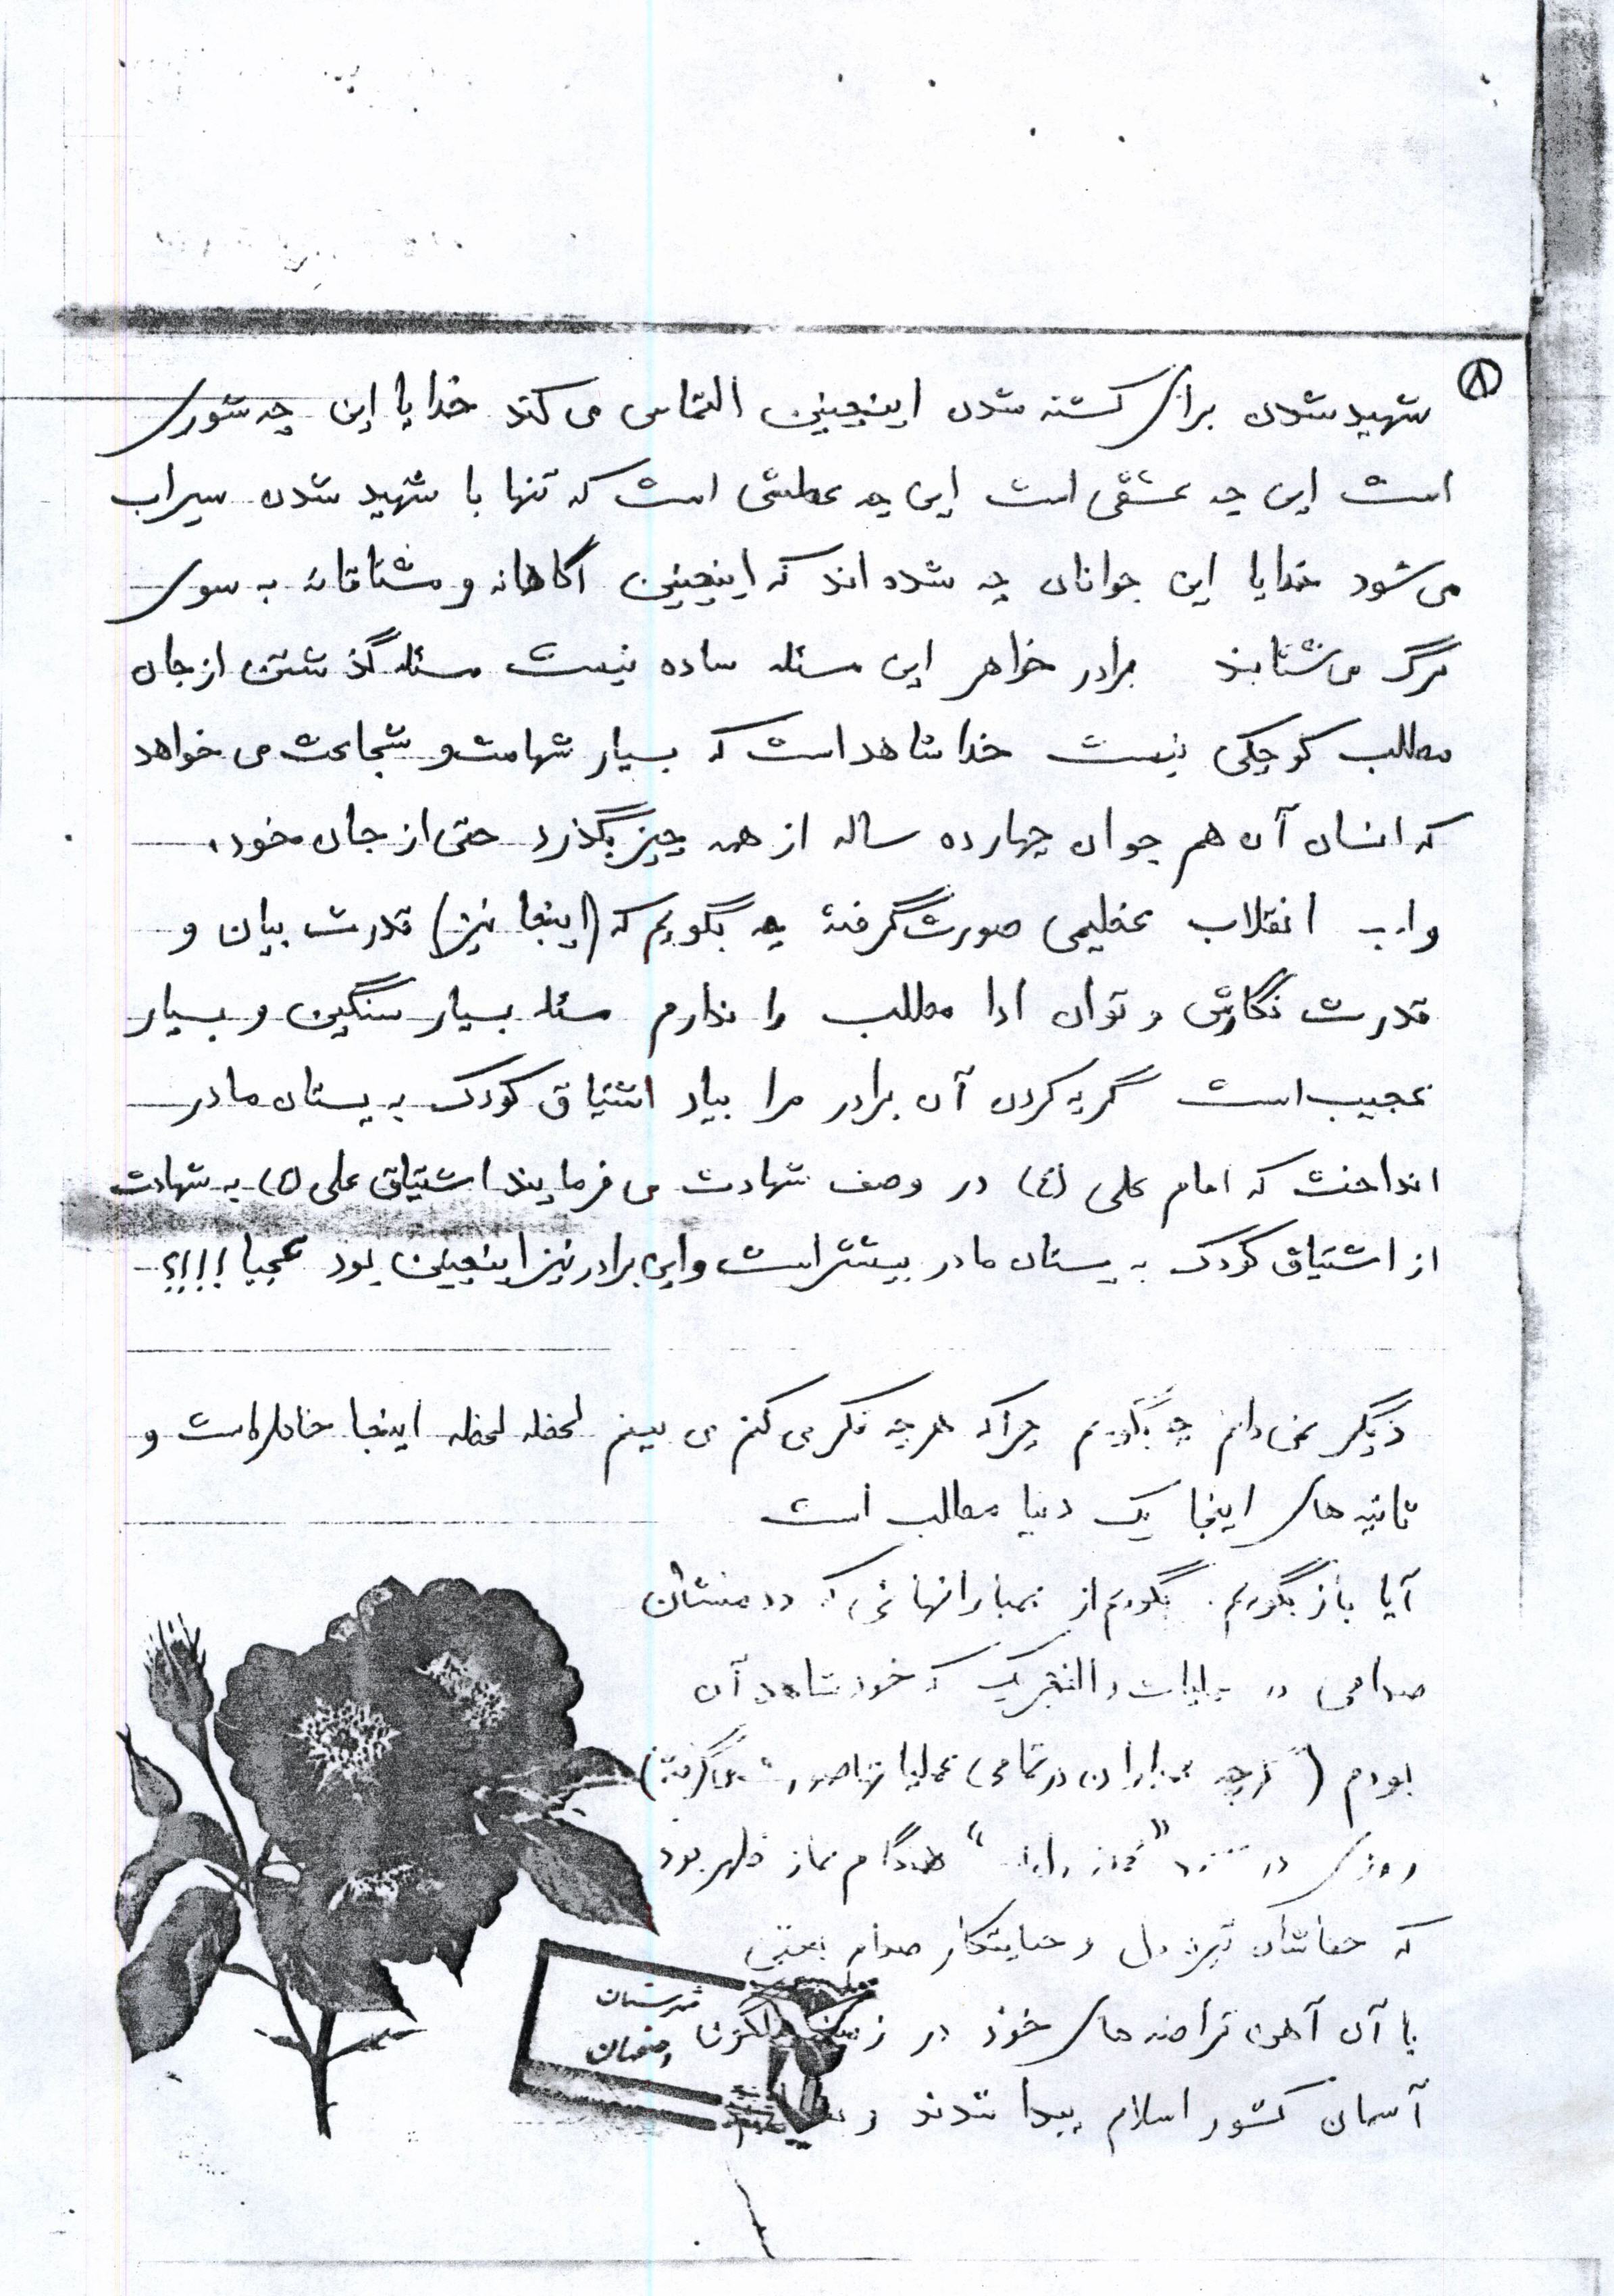 ۸
شهید شدن برای کشته شدن اینچنین التماس می کند خدایا این چه شوری
است این چه عشقی است این چه عطشی است که تنها با شهید شدن سیراب
می شود خدایا این جوانان چه شده اند که اینچنین آگاهانه و مشتاقانه به سوی
مرگ می شتابند برادر خواهر این مسئله ساده نیست مسئله گذشتن از جان
مطلب کوچکی نیست خدا شاهد است که بسیار شهامت و شجاعت می خواهد
که انسان آن هم جوان چهارده ساله از همه چیز بگذرد حتی از جان خود،
انقلاب عظیمی صورت گرفته چه بگویم که (اینجا نیز) قدرت بیان و
قدرت نگارش و توان ادا مطلب را ندارم مسئله بسیار سنگین و بسیار
عجیب است گریه کردن آن برادر مرا بیاد اشتیاق کودک به پستان مادر
انداخت که امام علی (ع) در وصف شهادت می فرمایند اشتیاق علی (ع) به شهادت
از اشتیاق کودک به پستان مادر بیشتر است و این برادر نیز اینچنین بود عجبا !!!!؟
دیگر نمی دانم چه بگویم چرا که هر چه فکر می کنم می بینم لحظه لحظه اینجا خاطره است و
ثانیه های اینجا یک دنیا مطالب است
آیا باز بگویم. بگویم از بمبارانهائی که دشمنان
صدامی در عملیات والفجر یک که خود شاهد آن
بودم (گرچه بمباران در تمامی عملیاتها صورت می گرفت)
روزی در هنگام نماز ظهر بود
که خفاشان تیره دل و جنایتکار صدام یعنی
با آن آهن قراضه های خود در
آسمان کشور اسلام پیدا شدند و
شهرستان
اصفهان